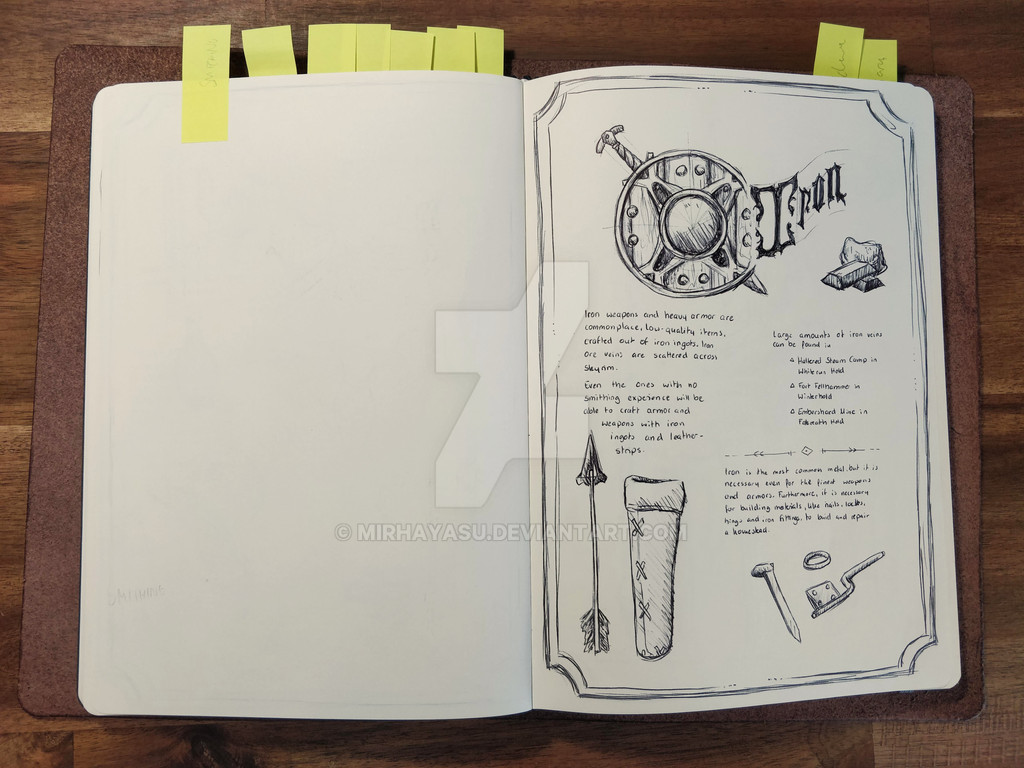 Iron
Iron weapons and heavy armor are
commonplace, low-quality items,
crafted out of iron ingots. Iron
ore veins are scattered across
Skyrim.
Even the ones with no
smithing experience will be
able to craft armor and
weapons with iron
ingots and leather-
strips.
Large amounts of iron veins
can be found in
Halted Stream Camp in
Whiterun Hold
Fort Fellhammer in
Winterhold
Embershard Mine in
Falkreath Hold
Iron is the most common metal but it is
necessary even for the finest weapons
and armors. Furthermore, it is necessary
for building materials, like nails, locks,
hinges and iron fittings, to build and repair
a homestead.
© MIRHAYASU.DEVIANTART.COM